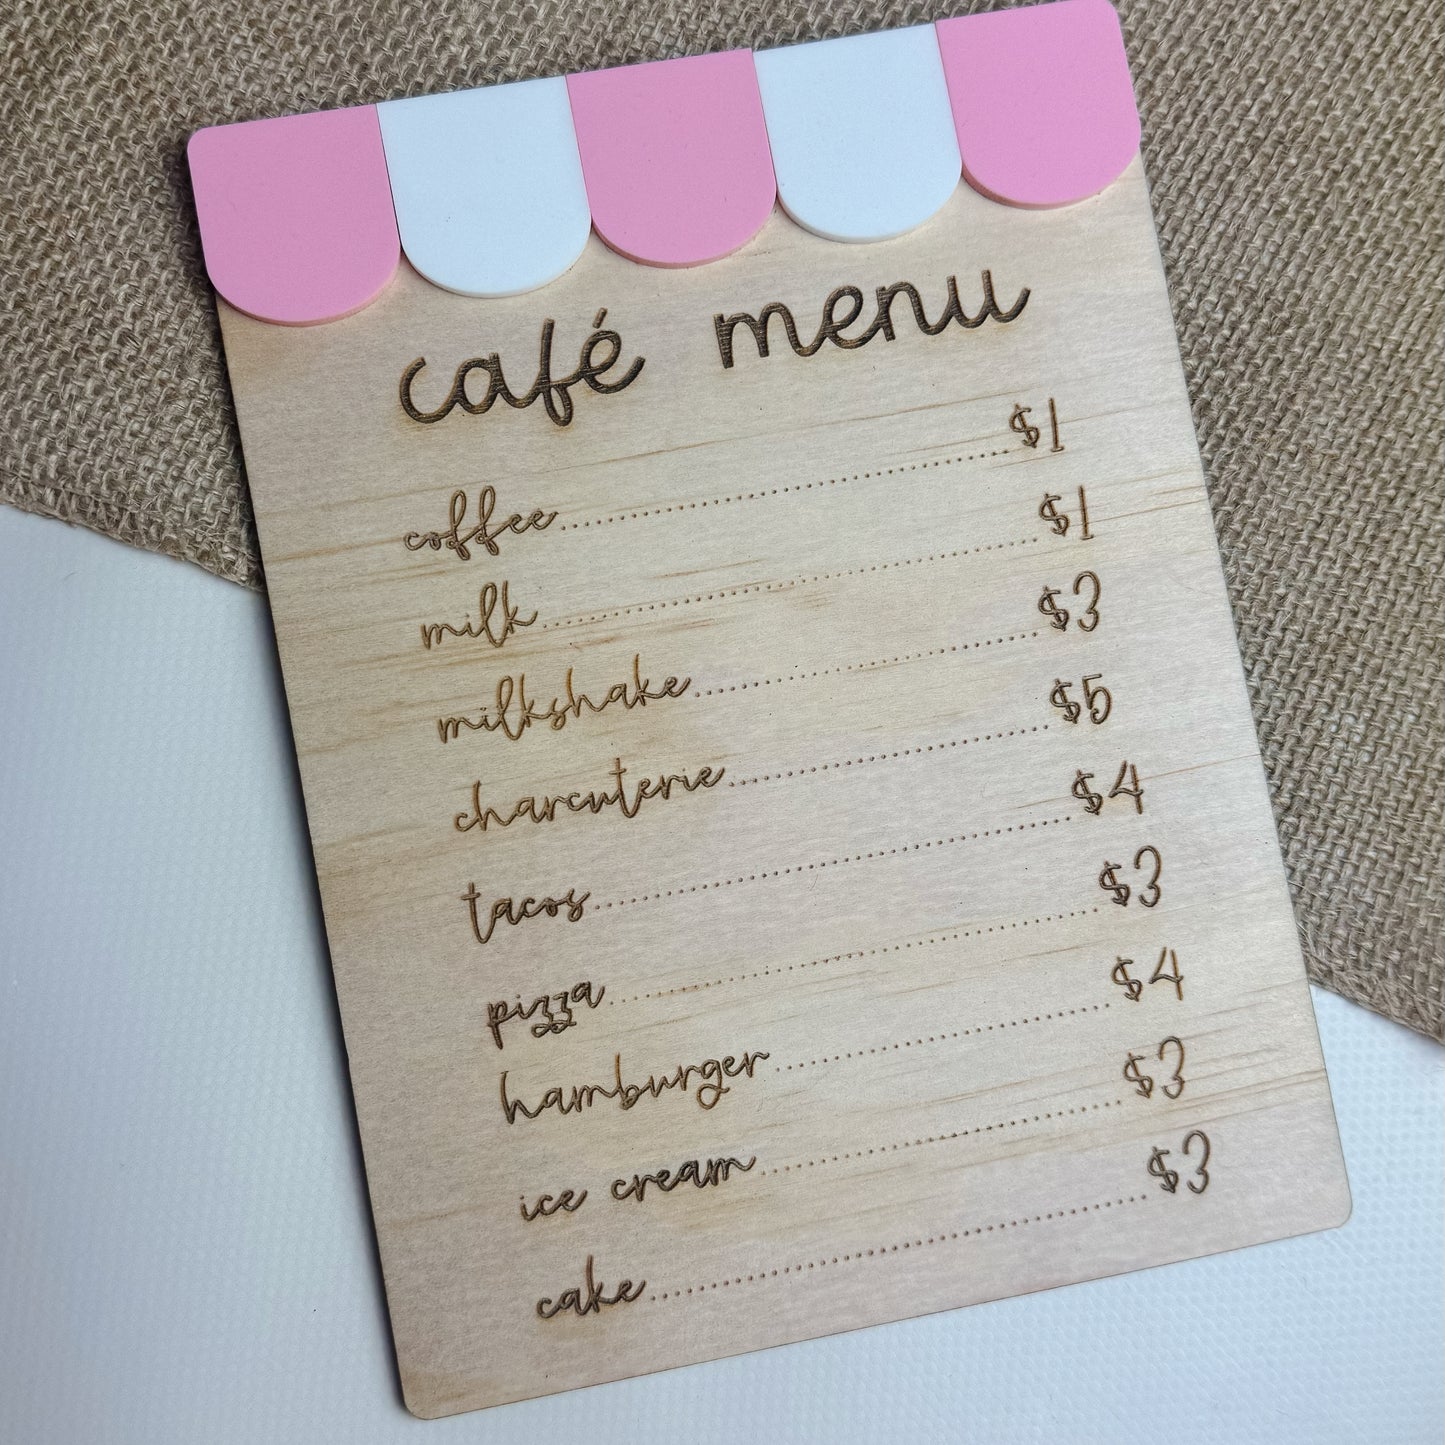 café menu
coffee..............................$1
milk..............................$1
milkshake..............................$3
charcuterie..............................$5
tacos..............................$4
pizza..............................$3
hamburger..............................$4
ice cream..............................$3
cake..............................$3